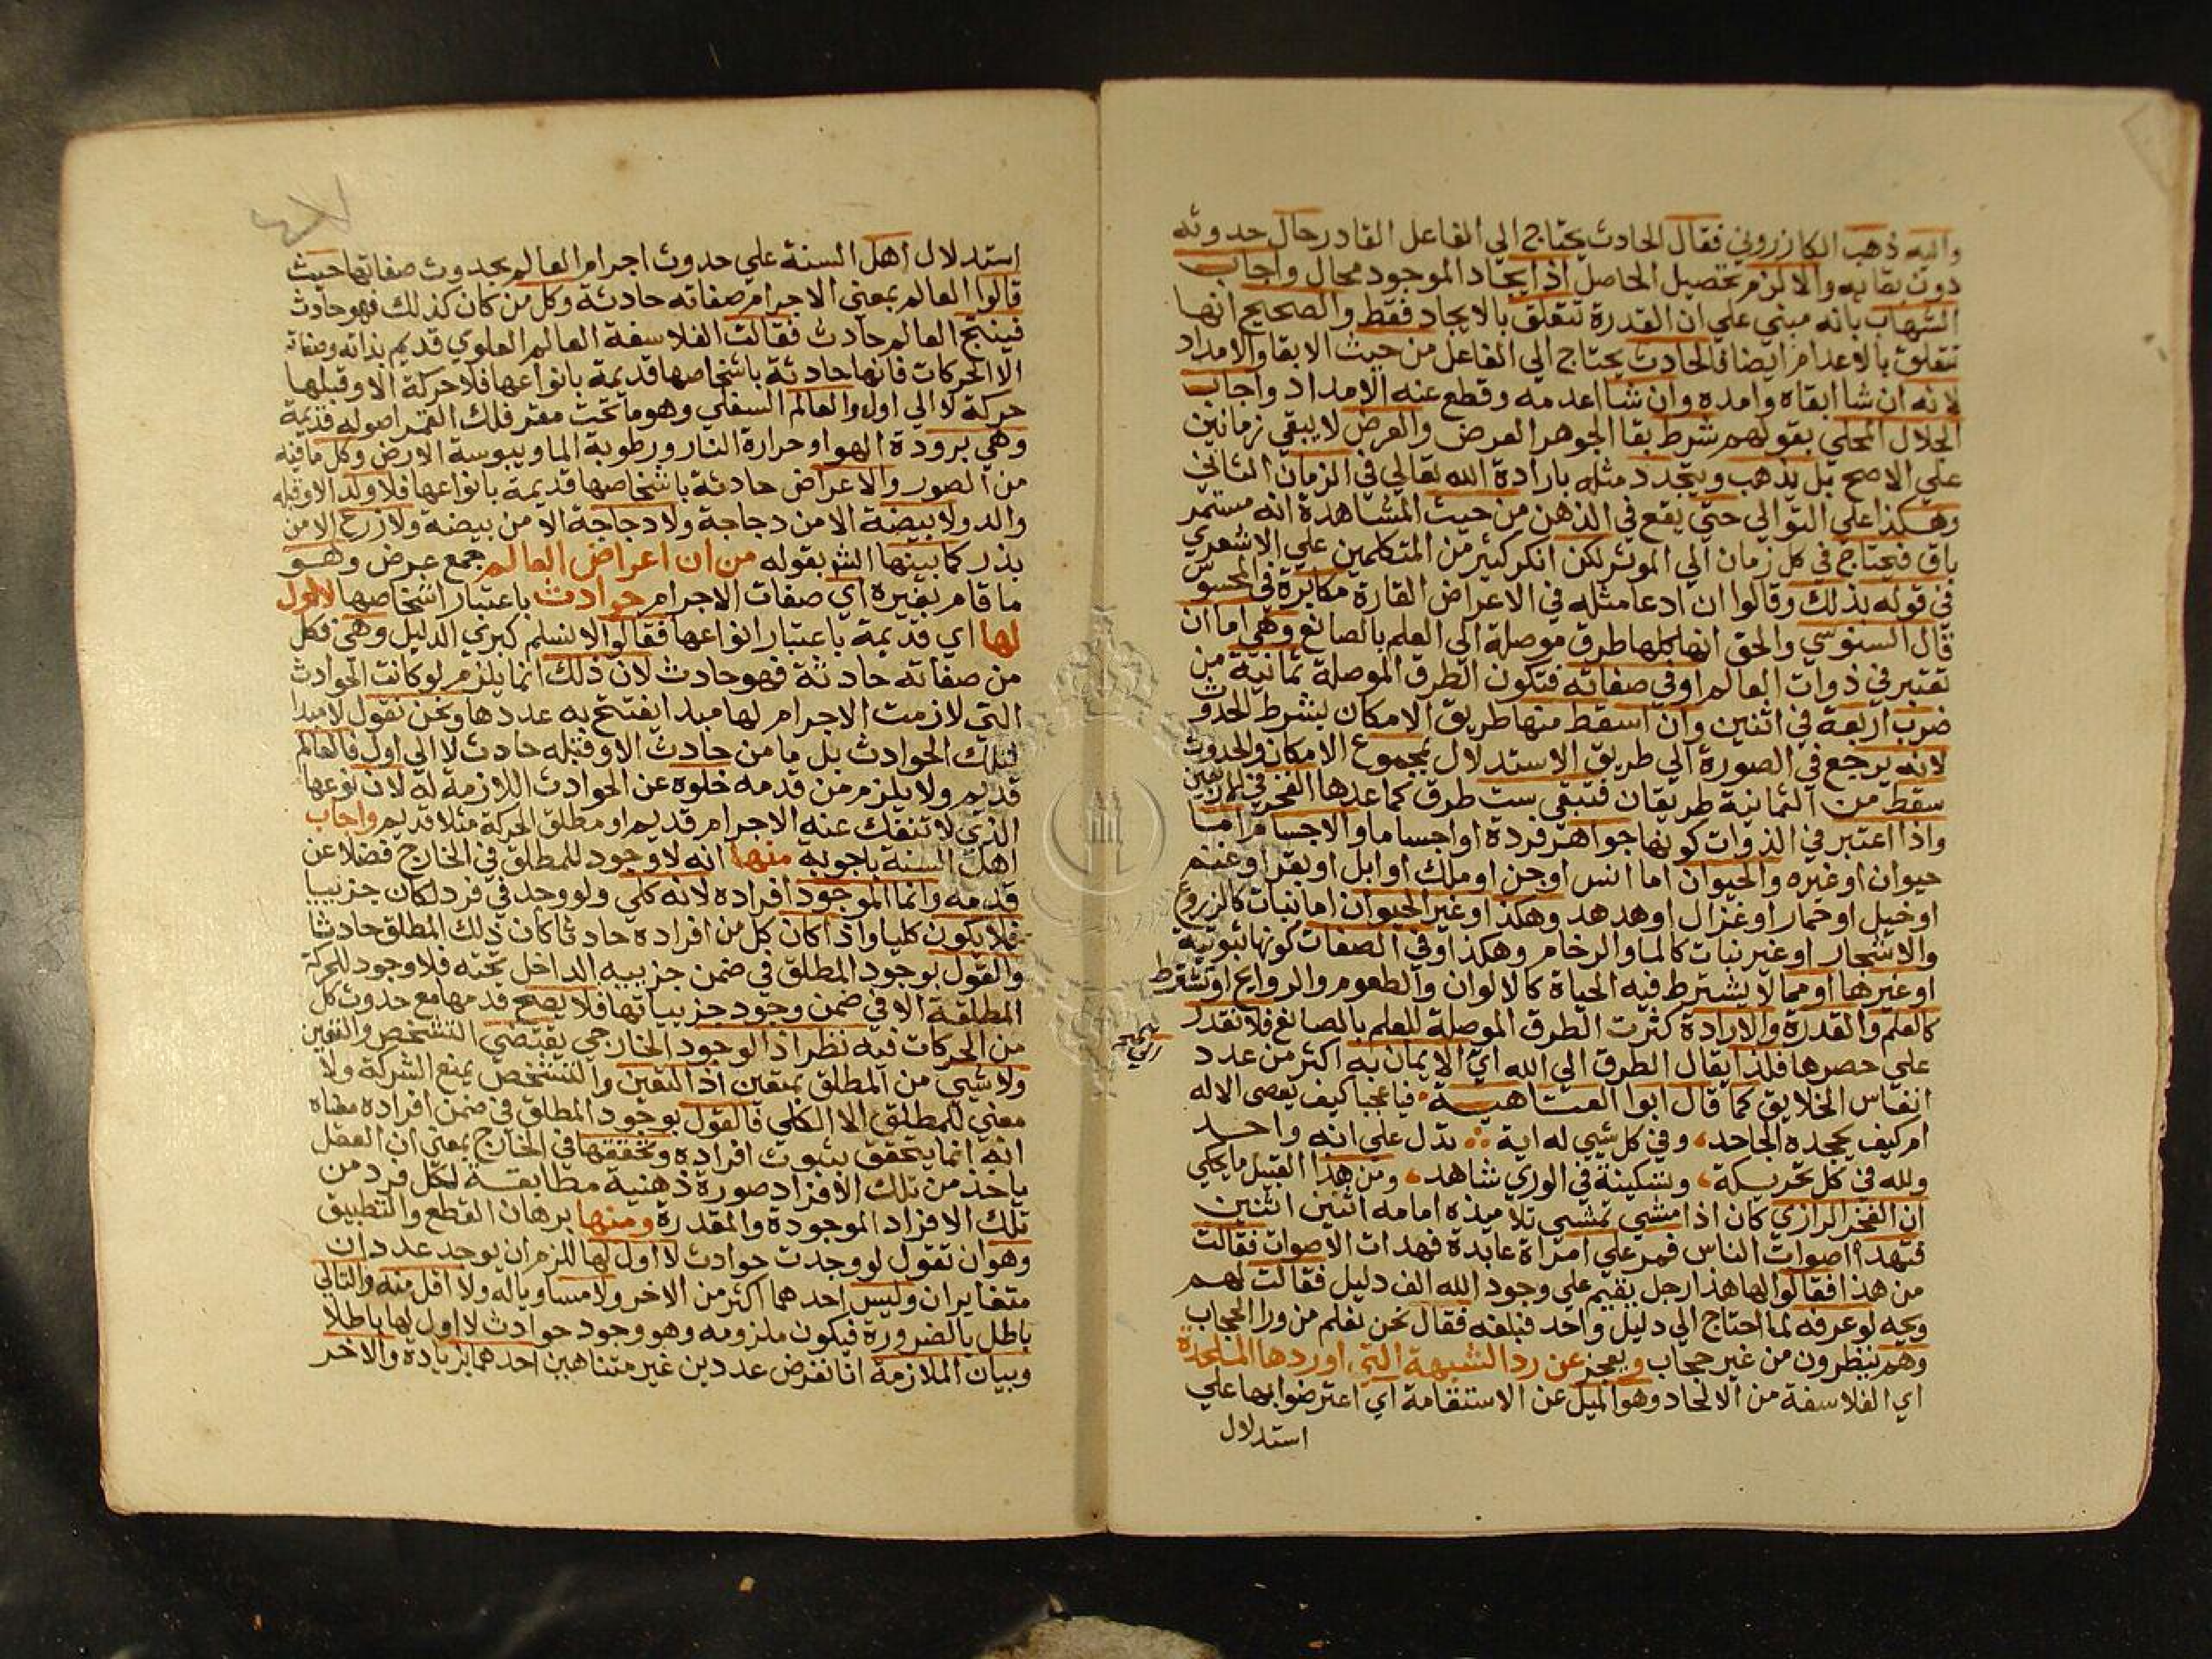 واليه ذهب الكازروني فقال الحادث يحتاج الي الفاعل القادر حال حدوثه
دون بقايه والا لزم تحصيل الحاصل اذ ايجاد الموجود محال واجاب
الشهاب بانه مبني علي ان القدرة تتعلق بالايجاد فقط والصحيح انها
تتعلق بالاعدام ايضا فالحادث يحتاج الي الفاعل من حيث الابقا والامداد
لانه ان شا ابقاه وامده وان شا اعدمه وقطع عنه الامداد واجاب
الجلال المحلي بقولهم شرط بقا الجوهر العرض والعرض لا يبقي زمانين
علي الاصح بل يذهب ويتجدد مثله بارادة الله تعالي في الزمان الثاني
وهكذا علي التوالي حتي يقع في الذهن من حيث المشاهدة انه مستمر
باق فيحتاج في كل زمان الي الموثر لكن انكر كثير من المتكلمين علي الاشعري
في قوله بذلك وقالوا ان ادعا مثله في الاعراض القارة مكابرة في المحسوس
قال السنوسي والحق انها كلها طرق موصلة الي العلم بالصانع وهي اما ان
تعتبر في ذوات العالم او في صفاته فتكون الطرق الموصلة ثمانية من
ضرب اربعة في اثنين وان اسقط منها طريق الامكان بشرط الحدوث
لانه يرجع في الصورة الي طريق الاستدلال بمجموع الامكان والحدوث
سقط من الثمانية طريقان فتبقي ست طرق كما عدها الفخر في
واذا اعتبر في الذوات كونها جواهر فردة او اجساما والاجسام اما
حيوان او غيره والحيوان اما انس او جن او ملك او ابل او بقر او غنم
او خيل او حمار او غزال او هدهد وهكذا او غير الحيوان اما نبات كالزروع
والاشجار او غير نبات كالما والرخام وهكذا وفي الصفات كونها ثبوتية
او غيرها او مما لا يشترط فيه الحياة كالالوان والطعوم والروايح او تشترط
كالعلم والقدرة والارادة كثرت الطرق الموصلة للعلم بالصانع فلا نقدر
علي حصرها فلذا يقال الطرق الي الله اي الايمان به اكثر من عدد
انفاس الخلايق كما قال ابوا العتاهية فيا عجبا كيف يعصي الاله
ام كيف يجحده الجاحد، وفي كل شيي له اية ؞ تدل علي انه واحد
ولله في كل تحريكة، وتسكينة في الوري شاهد، ومن هذا القبيل ما يحكي
ان الفخر الرازي كان اذا مشي تمشي تلاميذه امامه اثنين اثنين
فتهدا اصوات الناس فمر علي امراة عابدة فهدات الاصوات فقالت
من هذا فقالوا لها هذا رجل يقيم علي وجود الله الف دليل فقالت لهم
ويحه لو عرفه لما احتاج الي دليل واحد فبلغه فقال نحن نعلم من ورا الحجاب
وهم ينظرون من غير حجاب ويعجز عن رد الشبهة التي اوردها الملحدة
اي الفلاسفة من الالحاد وهو الميل عن الاستقامة اي اعترضوا بها علي
استدلال
استدلال اهل السنة علي حدوث اجرام العالم بحدوث صفاتها حيث
قالوا العالم بمعني الاجرام صفاته حادثة وكل من كان كذلك فهو حادث
فينتج العالم حادث فقالت الفلاسفة العالم العلوي قديم بذاته وصفاته
الا الحركات فانها حادثة باشخاصها قديمة بانواعها فلا حركة الا وقبلها
حركة لا الي اول والعالم السفلي وهو ما تحت مقعر فلك القمر اصوله قديمة
وهي برودة الهوا وحرارة النار ورطوبة الما ويبوسة الارض وكل ما فيه
من الصور والاعراض حادثة باشخاصها قديمة بانواعها فلا ولد الا وقبله
والد ولا بيضة الا من دجاجة ولا دجاجة الا من بيضة ولا زرع الا من
بذر كما بينها الش بقوله من ان اعراض العالم جمع عرض وهو
ما قام بغيره اي صفات الاجرام حوادث باعتبار اشخاصها لا اول
لها اي قديمة باعتبار انواعها فقالوا لا نسلم كبري الدليل وهي فكل
من صفاته حادثة فهو حادث لان ذلك انما يلزم لو كانت الحوادث
التي لازمت الاجرام لها مبدا يفتتح به عددها ونحن نقول لا مبدا
لتلك الحوادث بل ما من حادث الا وقبله حادث لا الي اول فالعالم
قديم ولا يلزم من قدمه خلوه عن الحوادث اللازمة له لان نوعها
الذي لا تنفك عنه الاجرام قديم او مطلق الحركة مثلا قديم واجاب
اهل السنة باجوبة منها انه لا وجود للمطلق في الخارج فضلا عن
قدمه وانما الموجود افراده لانه كلي ولو وجد في فرد لكان جزييا
فلا يكون كليا واذا كان كل من افراده حادثا كان ذلك المطلق حادثا
والقول بوجود المطلق في ضمن جزييه الداخل تحته فلا وجود للحركة
المطلقة الا في ضمن وجود جزيياتها فلا يصح قدمها مع حدوث كل
من الحركات فيه نظر اذ الوجود الخارجي يقتضي التشخص والتعين
ولا شيي من المطلق بمتعين اذ التعين والتشخص يمنع الشركة ولا
معني للمطلق الا الكلي فالقول بوجود المطلق في ضمن افراده معناه
انه انما يتحقق بثبوت افراده وتحققها في الخارج بمعني ان العقل
ياخذ من تلك الافراد صورة ذهنية مطابقة لكل فرد من
تلك الافراد الموجودة والمقدرة ومنها برهان القطع والتطبيق
وهو ان تقول لو وجدت حوادث لا اول لها للزم ان يوجد عددان
متغايران وليس احدهما اكثر من الاخر ولا مساويا له ولا اقل منه والتالي
باطل بالضرورة فيكون ملزومه وهو وجود حوادث لا اول لها باطلا
وبيان الملازمة انا نفرض عددين غير متناهيين احدهما بزيادة والاخر